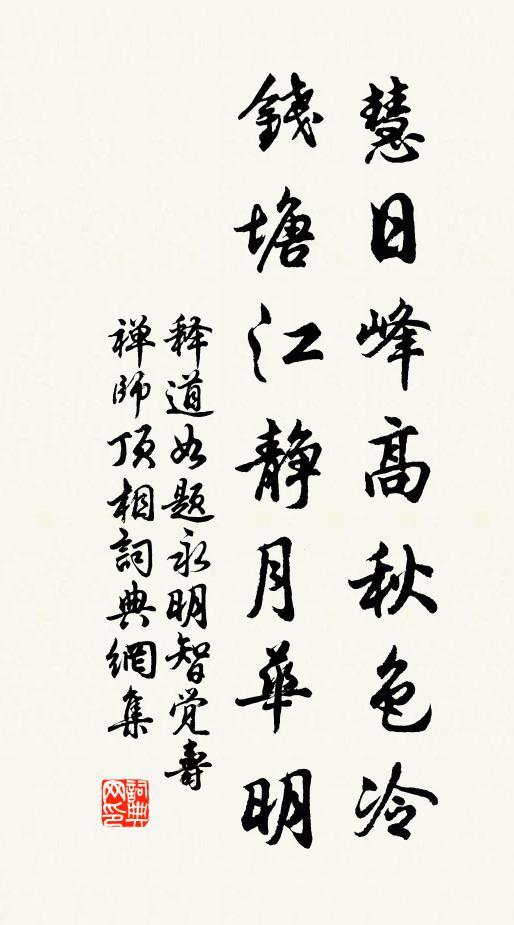 慧日峰高秋色冷
錢塘江静月華明
释道如题永明智觉壽
禅師顶相詞典網集
詞典网印